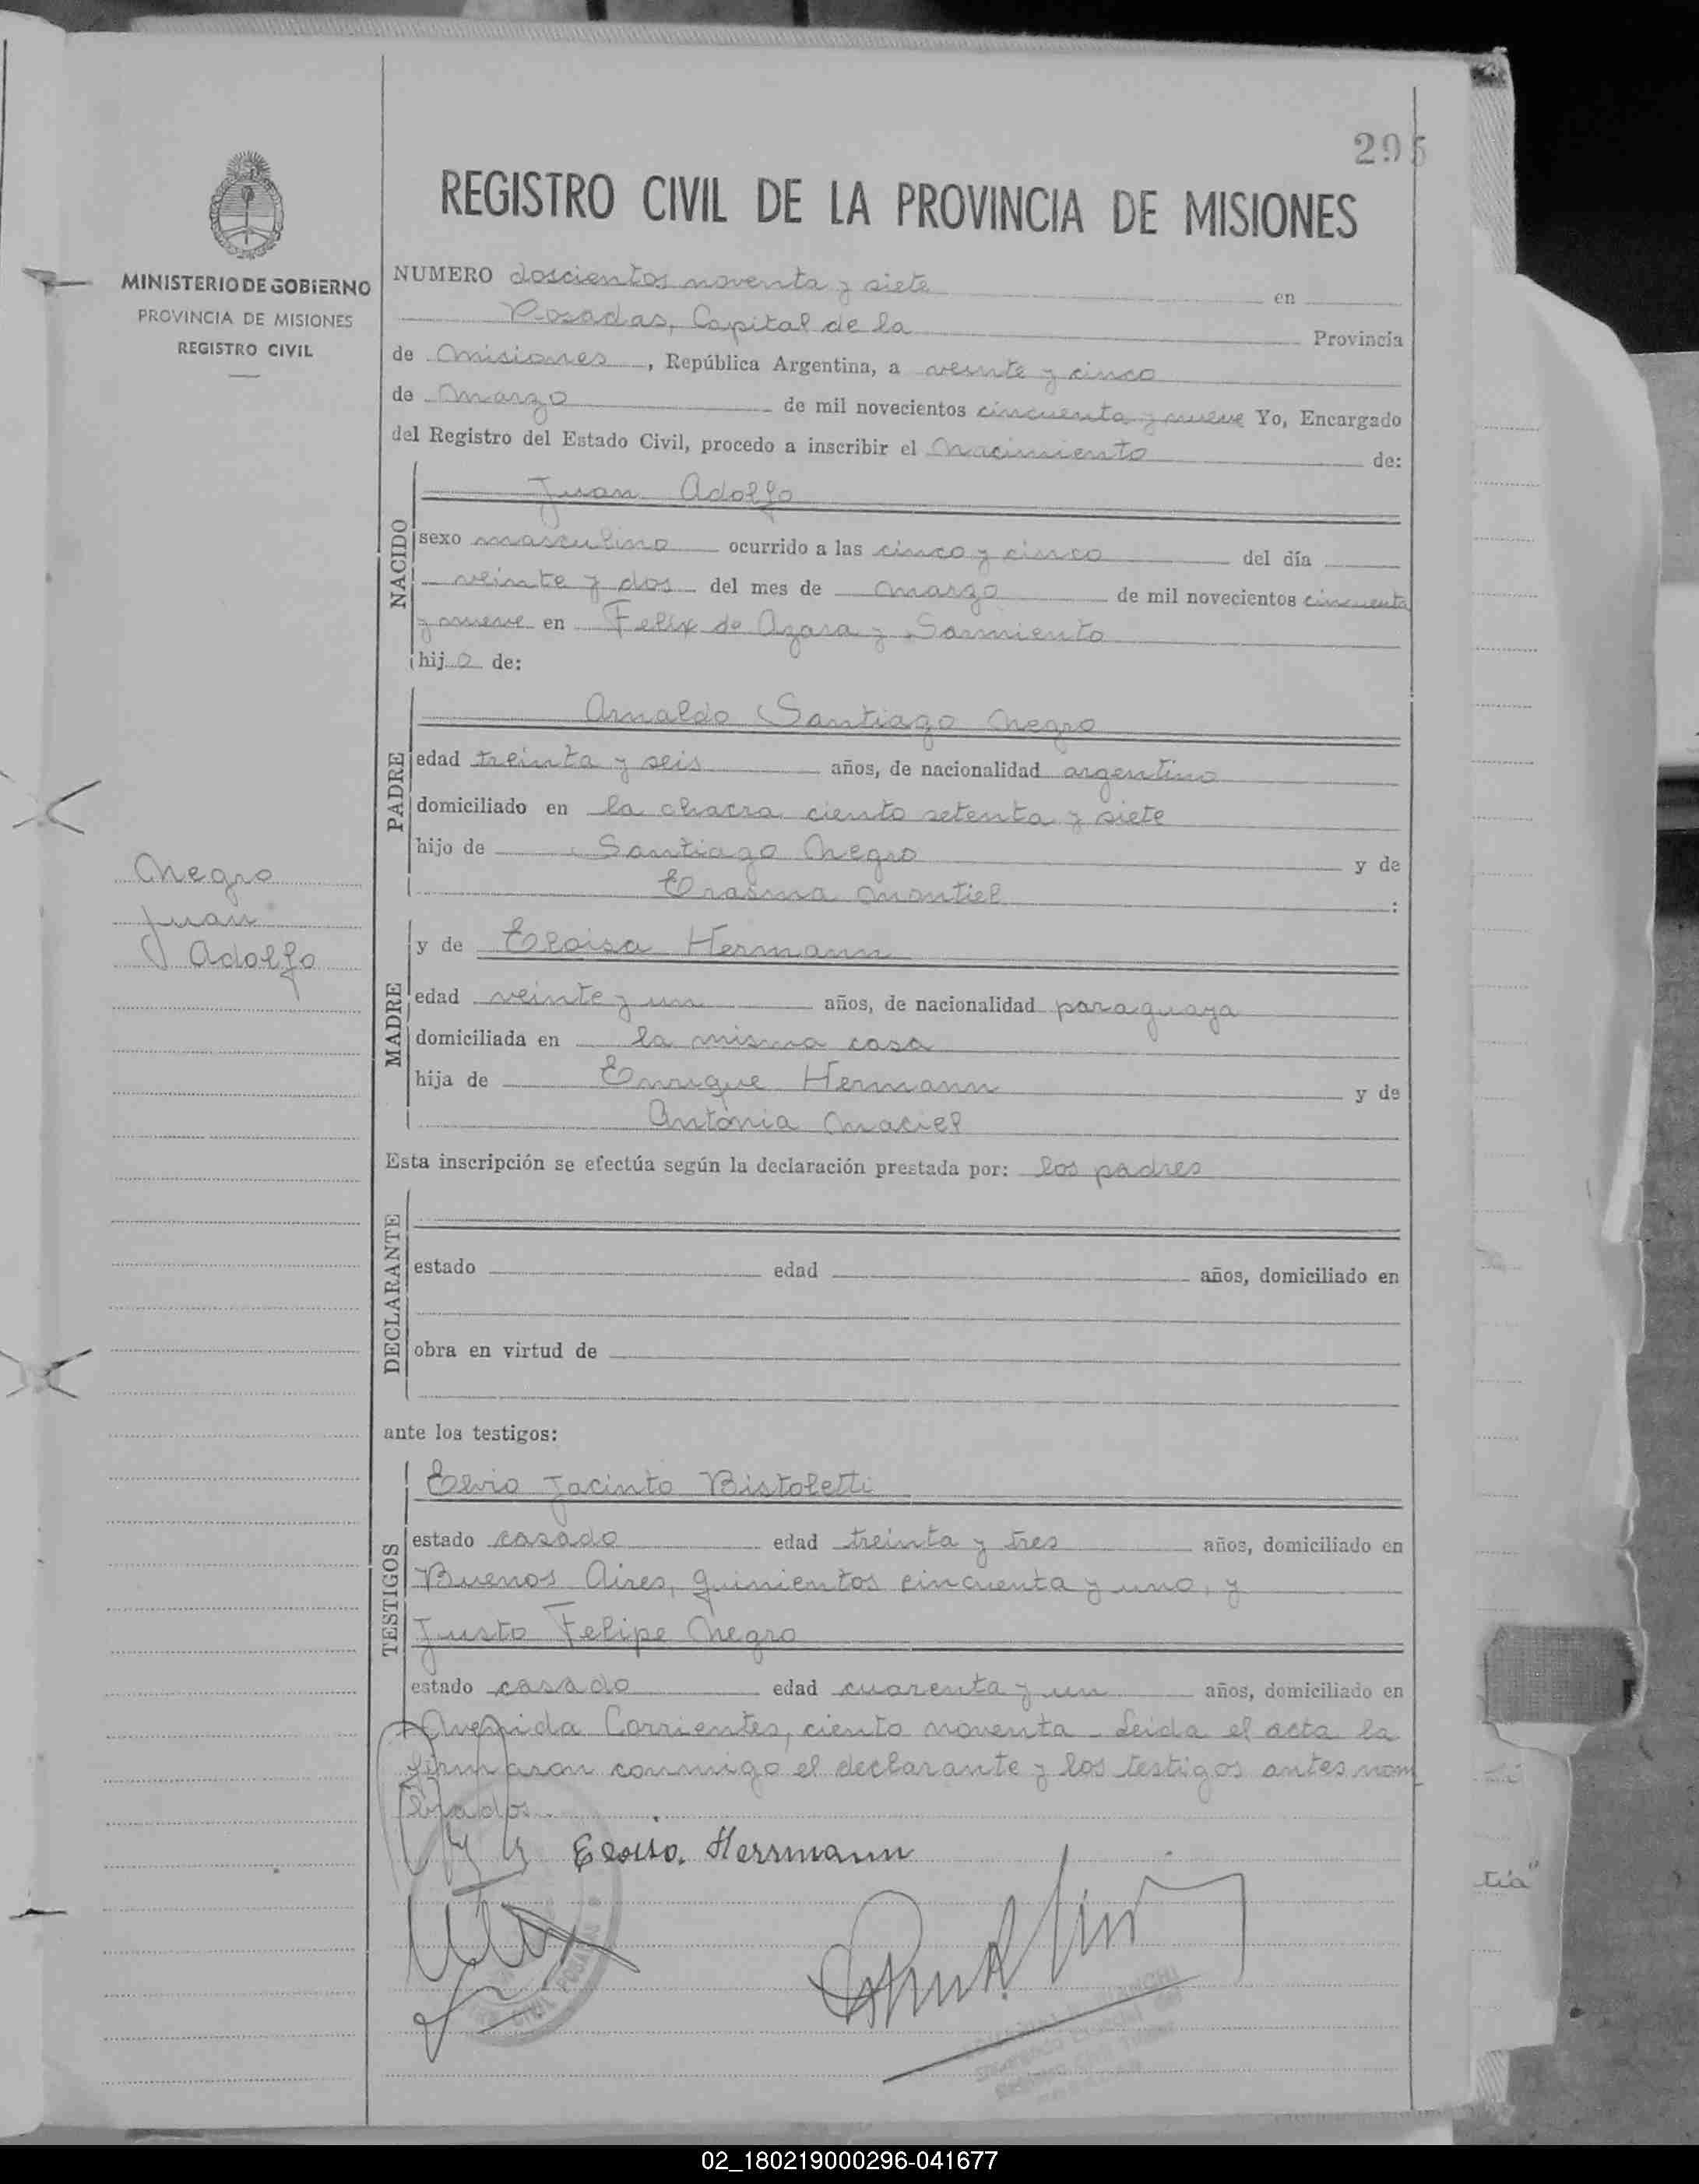 295
REGISTRO CIVIL DE LA PROVINCIA DE MISIONES
MINISTERIO DE GOBIERNO
PROVINCIA DE MISIONES
REGISTRO CIVIL
NUMERO doscientos noventa y siete en
Posadas, Capital de la Provincia
de Misiones, República Argentina, a veinte y cinco
de Marzo de mil novecientos cincuenta y nueve Yo, Encargado
del Registro del Estado Civil, procedo a inscribir el Nacimiento de:
NACIDO
Juan Adolfo
sexo masculino ocurrido a las cinco y cinco del día
veinte y dos del mes de Marzo de mil novecientos cincuenta
y nueve en Felix de Azara y Sarmiento
hijo de:
PADRE
Arnaldo Santiago Negro
edad treinta y seis años, de nacionalidad argentino
domiciliado en la chacra ciento setenta y siete
hijo de Santiago Negro y de
Erasma Montiel :
Negro
Juan
Adolfo
MADRE
y de Eloisa Hermann
edad veinte y un años, de nacionalidad paraguaya
domiciliada en la misma casa
hija de Enrique Hermann y de
Antonia Maciel
Esta inscripción se efectúa según la declaración prestada por: los padres
DECLARANTE
estado edad años, domiciliado en
obra en virtud de
ante los testigos:
TESTIGOS
Elvio Jacinto Bistoletti
estado casado edad treinta y tres años, domiciliado en
Buenos Aires, quinientos cincuenta y uno, y
Justo Felipe Negro
estado casado edad cuarenta y un años, domiciliado en
Avenida Corrientes, ciento noventa - Leida el acta la
firmaron conmigo el declarante y los testigos antes nom
brados.
Eloisa Herrmann
tia"
02_180219000296-041677